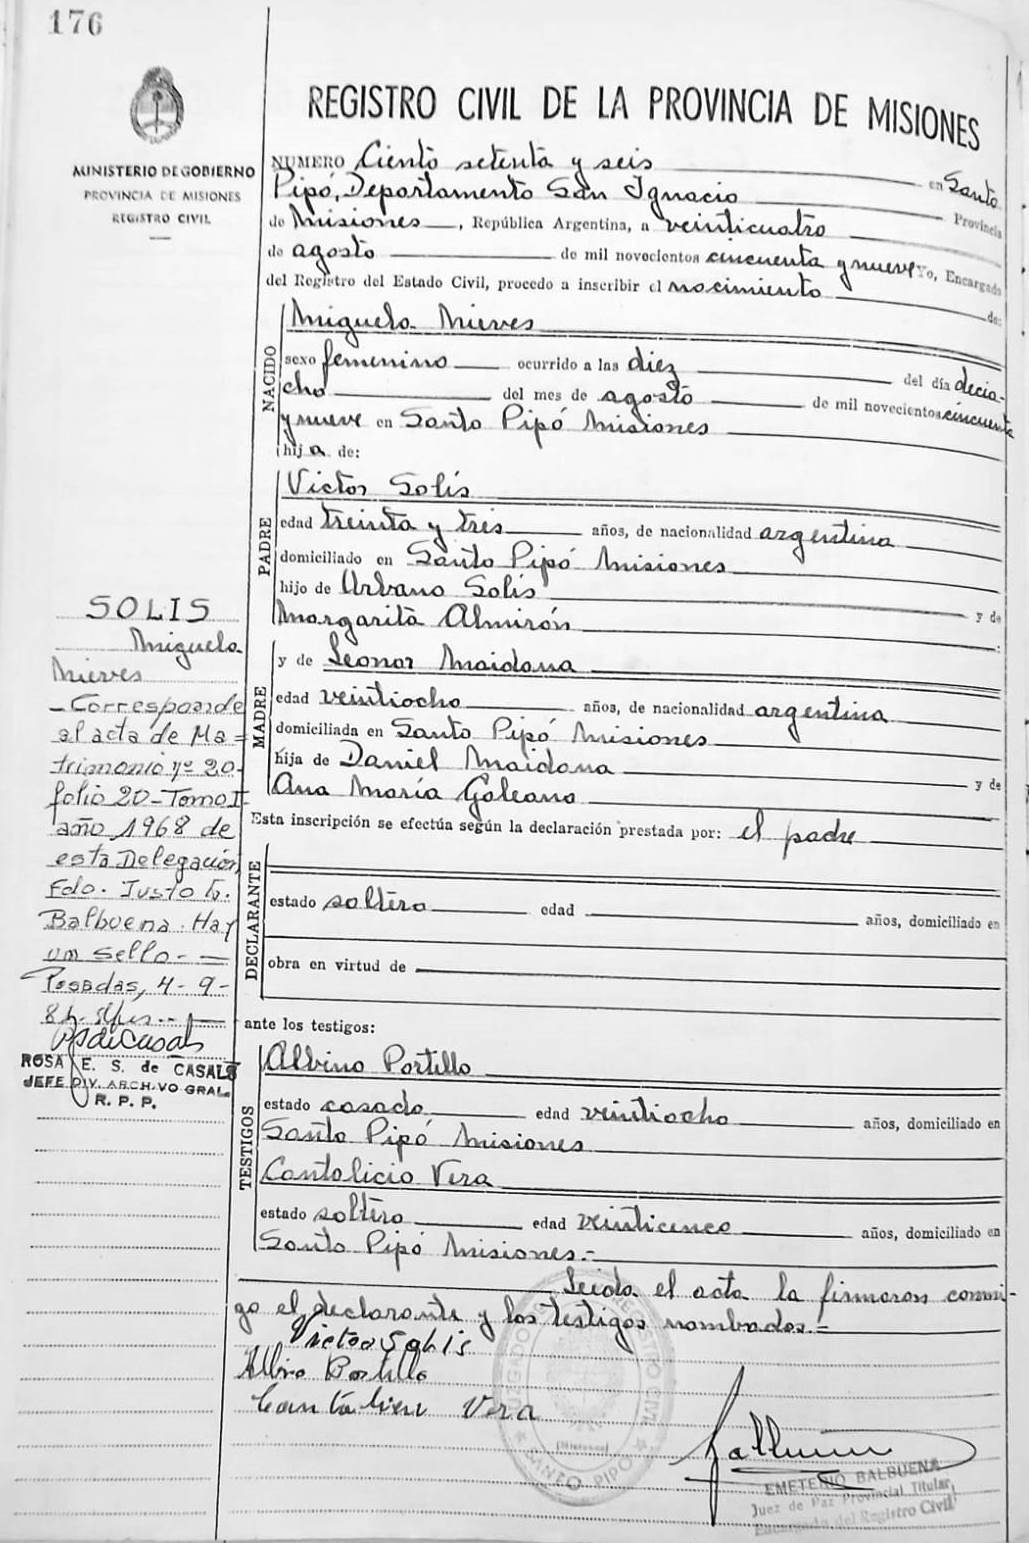 176
MINISTERIO DE GOBIERNO
PROVINCIA DE MISIONES
REGISTRO CIVIL
REGISTRO CIVIL DE LA PROVINCIA DE MISIONES
NUMERO Ciento setenta y seis en Santo
Pipó, Departamento San Ignacio Provincia
de Misiones, República Argentina, a veinticuatro
de agosto de mil novecientos cincuenta y nueve Yo, Encargado
del Registro del Estado Civil, procedo a inscribir el nacimiento de:
NACIDO
Miguela Nieves
sexo femenino ocurrido a las diez del día decio-
cho del mes de agosto de mil novecientos cincuenta
y nueve en Santo Pipó Misiones
hija de:
PADRE
Victor Solís
edad treinta y tres años, de nacionalidad argentina
domiciliado en Santo Pipó Misiones
hijo de Urbano Solís y de
Margarita Almirón
MADRE
y de Leonor Maidana
edad veintiocho años, de nacionalidad argentina
domiciliada en Santo Pipó Misiones
hija de Daniel Maidana y de
Ana María Galeano
Esta inscripción se efectúa según la declaración prestada por: el padre
DECLARANTE
estado soltero edad años, domiciliado en
obra en virtud de
ante los testigos:
TESTIGOS
Albino Portillo
estado casado edad veintiocho años, domiciliado en
Santo Pipó Misiones
Cantalicio Vera
estado soltero edad veinticinco años, domiciliado en
Santo Pipó Misiones.-
Leida el acta la firmaron conmi-
go el declarante y los testigos nombrados.=
Albino Portillo
Vera
SOLIS
Miguela
Nieves
- Corresponde
al acta de Ma=
trimonio nº 20-
folio 20-Tomo II-
año 1968 de
esta Delegación,
Fdo. Justo
Balbuena. Hay
un sello.-
Posadas, 4-9-
ROSA E. S. de CASALS
JEFE DIV. ARCHIVO GRAL.
R. P. P.
REGISTRO CIVIL
(Misiones)
SANTO PIPO
EMETERIO BALBUENA
Juez de Paz Provincial Titular
Encargado del Registro Civil